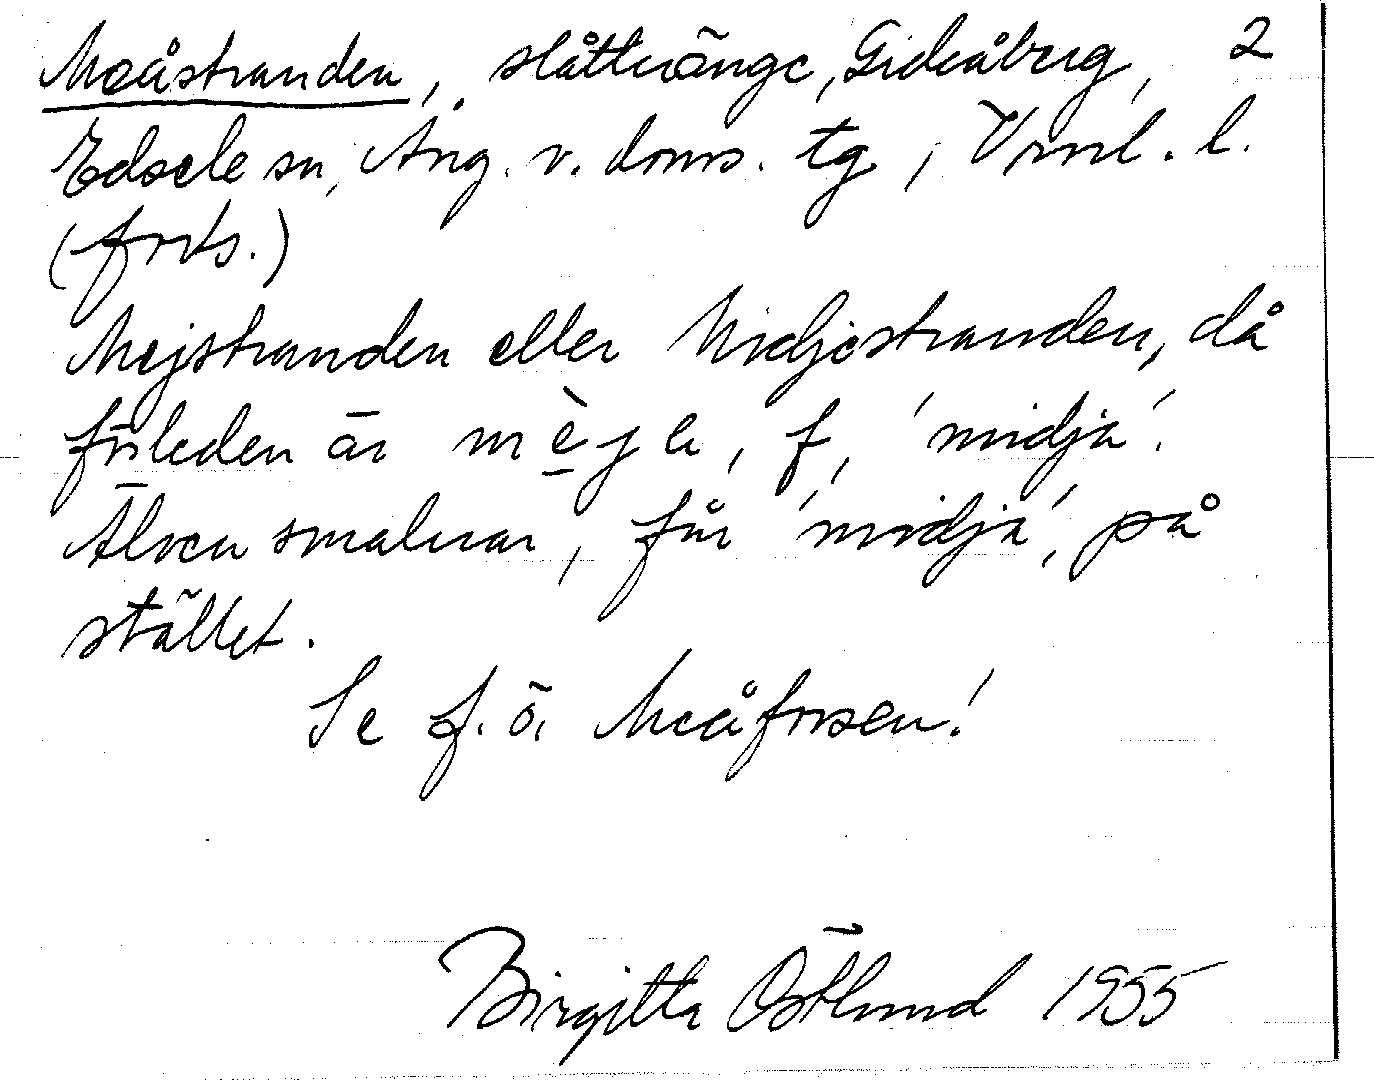 Meåstranden, slåttеränge, Gideåberg, 2
Edsele sn, Ång. v. doms. tg, Vrnl. l.
(forts.)
Mejstranden eller Midjestranden, då
förleden är mèj a, f, 'midja'.
Älven smalnar, får 'midja', på
stället.
Se f. ö. Meåforsen!
Birgitta Östlund 1955